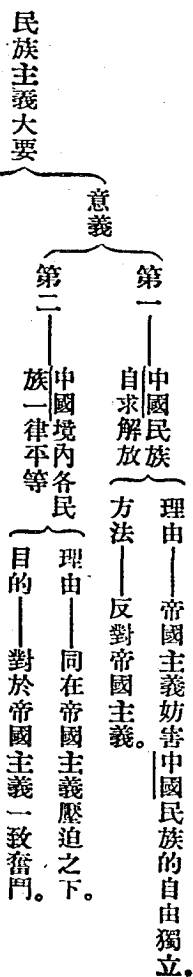 民族主義大要
意義
第一
中國民族
自求解放
理由——帝國主義妨害中國民族的自由獨立。
方法——反對帝國主義。
第二
中國境內各民
族一律平等
理由——同在帝國主義壓迫之下。
目的——對於帝國主義一致奮鬥。